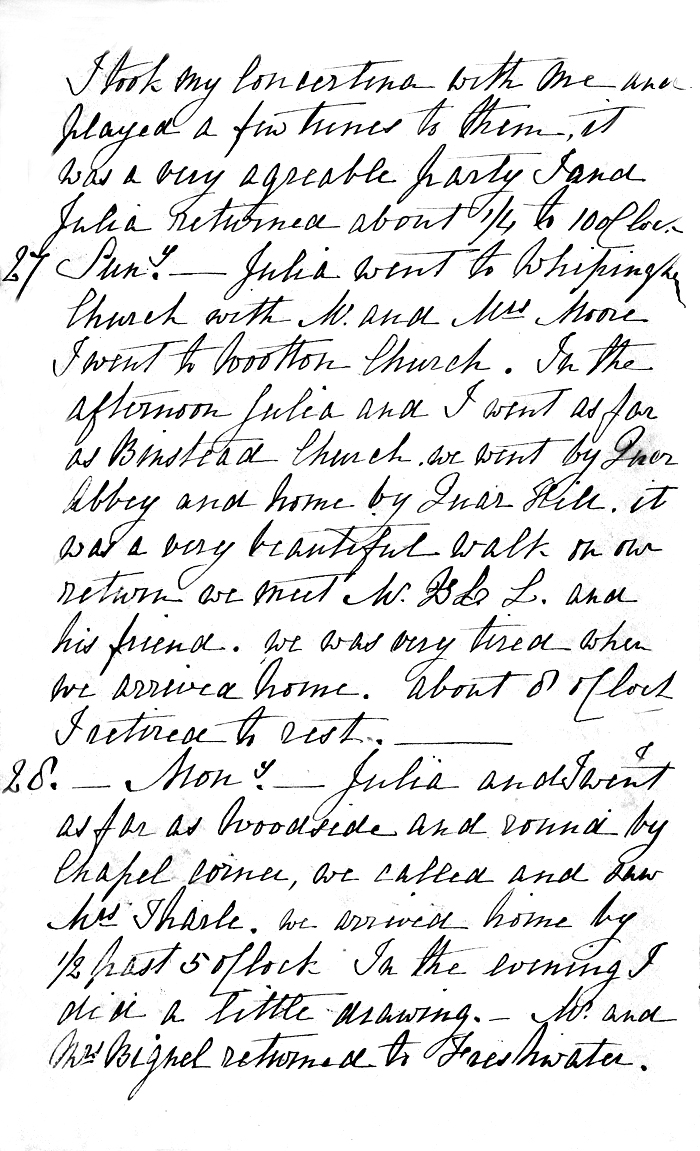 I took my Concertina with me and
played a few tunes to them, it
was a very agreable party I and
Julia returned about 1/4 to 10 O'Cloc
27 Sun.y — Julia went to Whipingha
Church with Mr. and Mrs Moore
I went to Wootton Church. In the
afternoon Julia and I went as far
as Binstead Church. we went by Quar
Abbey and home by Quar Hill. it
was a very beautiful walk on our
return we meet Mr. L. and
his friend. we was very tired when
we arrived home. about 8 O'Clock
I retired to rest. —
28. — Mon.y — Julia and I went
as far as Woodside and round by
Chapel corner, we called and saw
Mrs Tharle. we arrived home by
1/2 past 5 O'Clock In the evening I
did a little drawing. — Mr. and
Mrs Bignel returned to Freshwater.